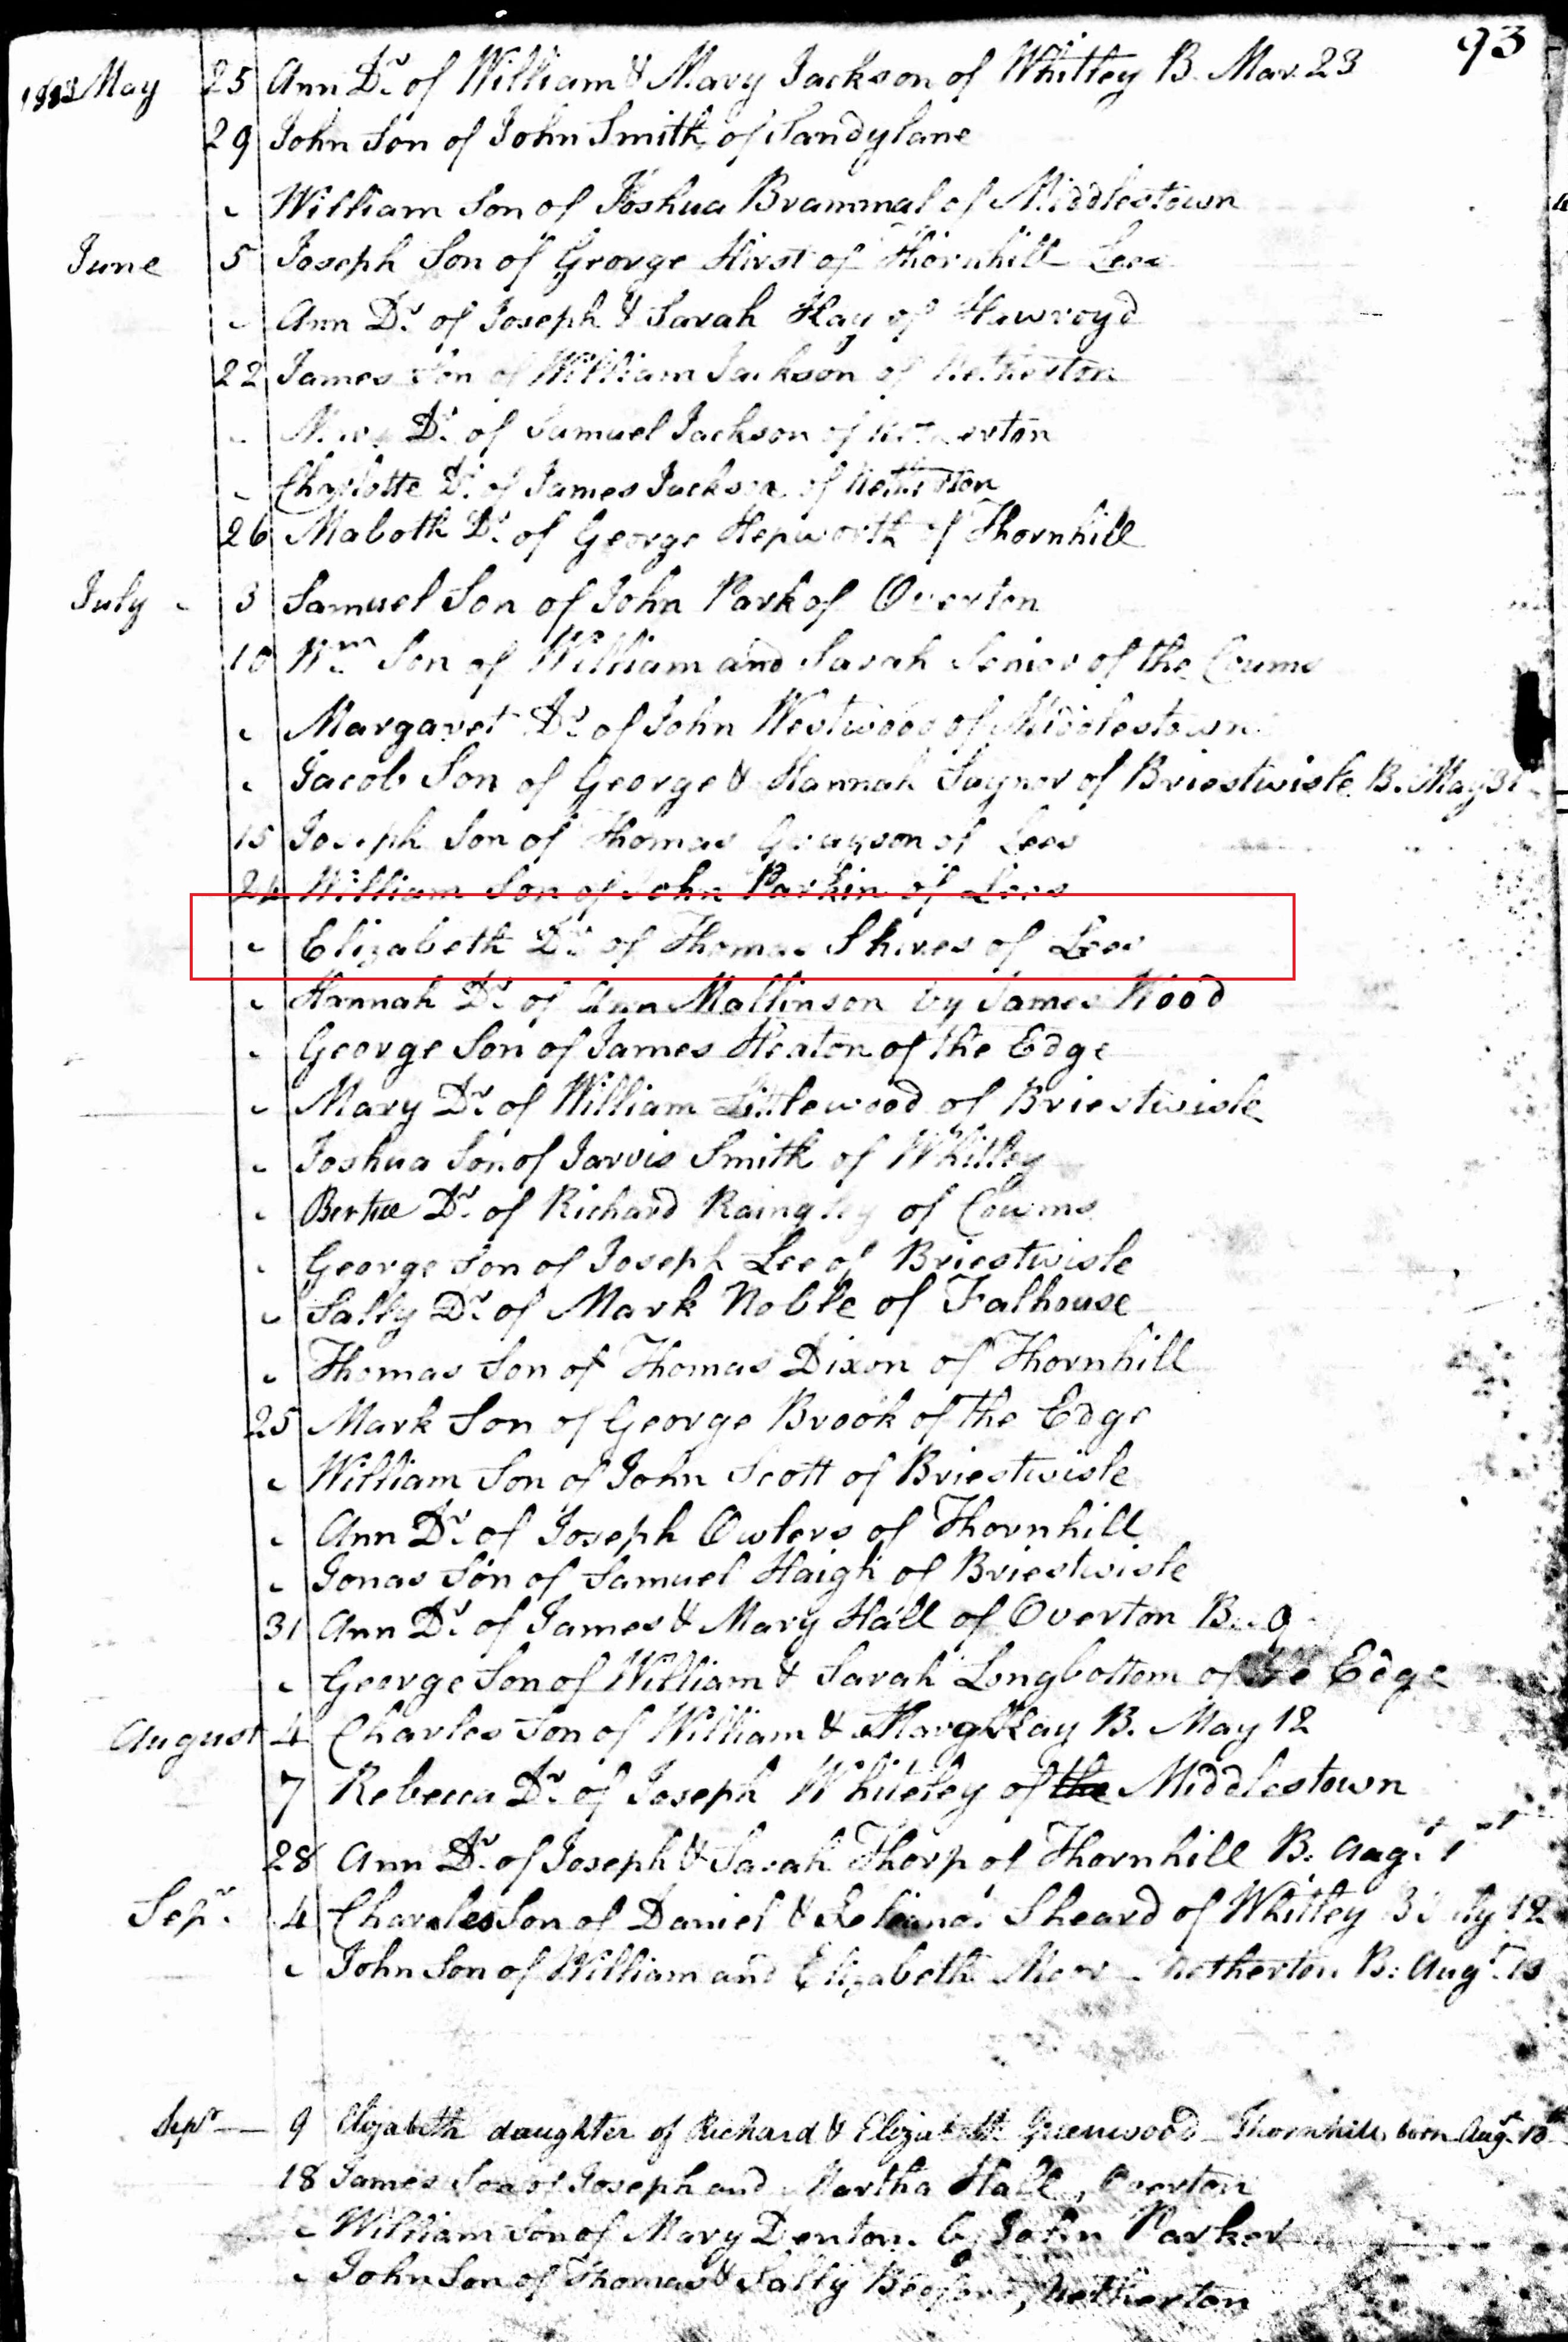 93
May 25 Ann Dr. of William & Mary Jackson of Whitley B. Mar. 23
29 John Son of John Smith of Sandylane
William Son of Joshua Brammal of Middlestown
June 5 Joseph Son of George Hirst of Thornhill Lees
Ann Dr. of Joseph & Sarah Kay of Hawroyd
22 James Son of William Jackson of Netherton
Dr. of Samuel Jackson of Netherton
Charlotte Dr. of James Jackson of Netherton
26 Maboth Dr. of George Hepworth of Thornhill
July 3 Samuel Son of John Park of Overton
10 Wm Son of William and Sarah Senior of the Coums
Margaret Dr. of John Westwood of Middlestown
Jacob Son of George & Hannah Saynor of Briestwisle B. May 31
15 Joseph Son of Thomas Grayson of Lees
24 William Son of John Parkin of Lees
Elizabeth Dr. of Thomas Shires of Lees
Hannah Dr. of Ann Mallinson by James Wood
George Son of James Heaton of the Edge
Mary Dr. of William Littlewood of Briestwisle
Joshua Son of Jarvis Smith of Whitley
Dr. of Richard of Coums
George Son of Joseph Lee of Briestwisle
Sally Dr. of Mark Noble of Falhouse
Thomas Son of Thomas Dixon of Thornhill
25 Mark Son of George Brook of the Edge
William Son of John Scott of Briestwisle
Ann Dr. of Joseph Owlers of Thornhill
Jonas Son of Samuel Haigh of Briestwisle
31 Ann Dr. of James & Mary Hall of Overton B. 9
George Son of William & Sarah Longbottom of the Edge
August 4 Charles Son of William & Kay B. May 12
7 Rebecca Dr. of Joseph Whiteley of the Middlestown
28 Ann Dr. of Joseph & Sarah Thorp of Thornhill B. Augt. 1st
Sepr. 4 Charles Son of Daniel & Sheard of Whitley 12
John Son of William and Elizabeth Netherton B: Augt.
Sepr — 9 Elizabeth daughter of Richard & Elizabeth Greenwood Thornhill, born Augt. 10th
18 James Son of Joseph and Martha Hall, Overton
William Son of Mary Denton by John Parker
John Son of Thomas & Sally Netherton